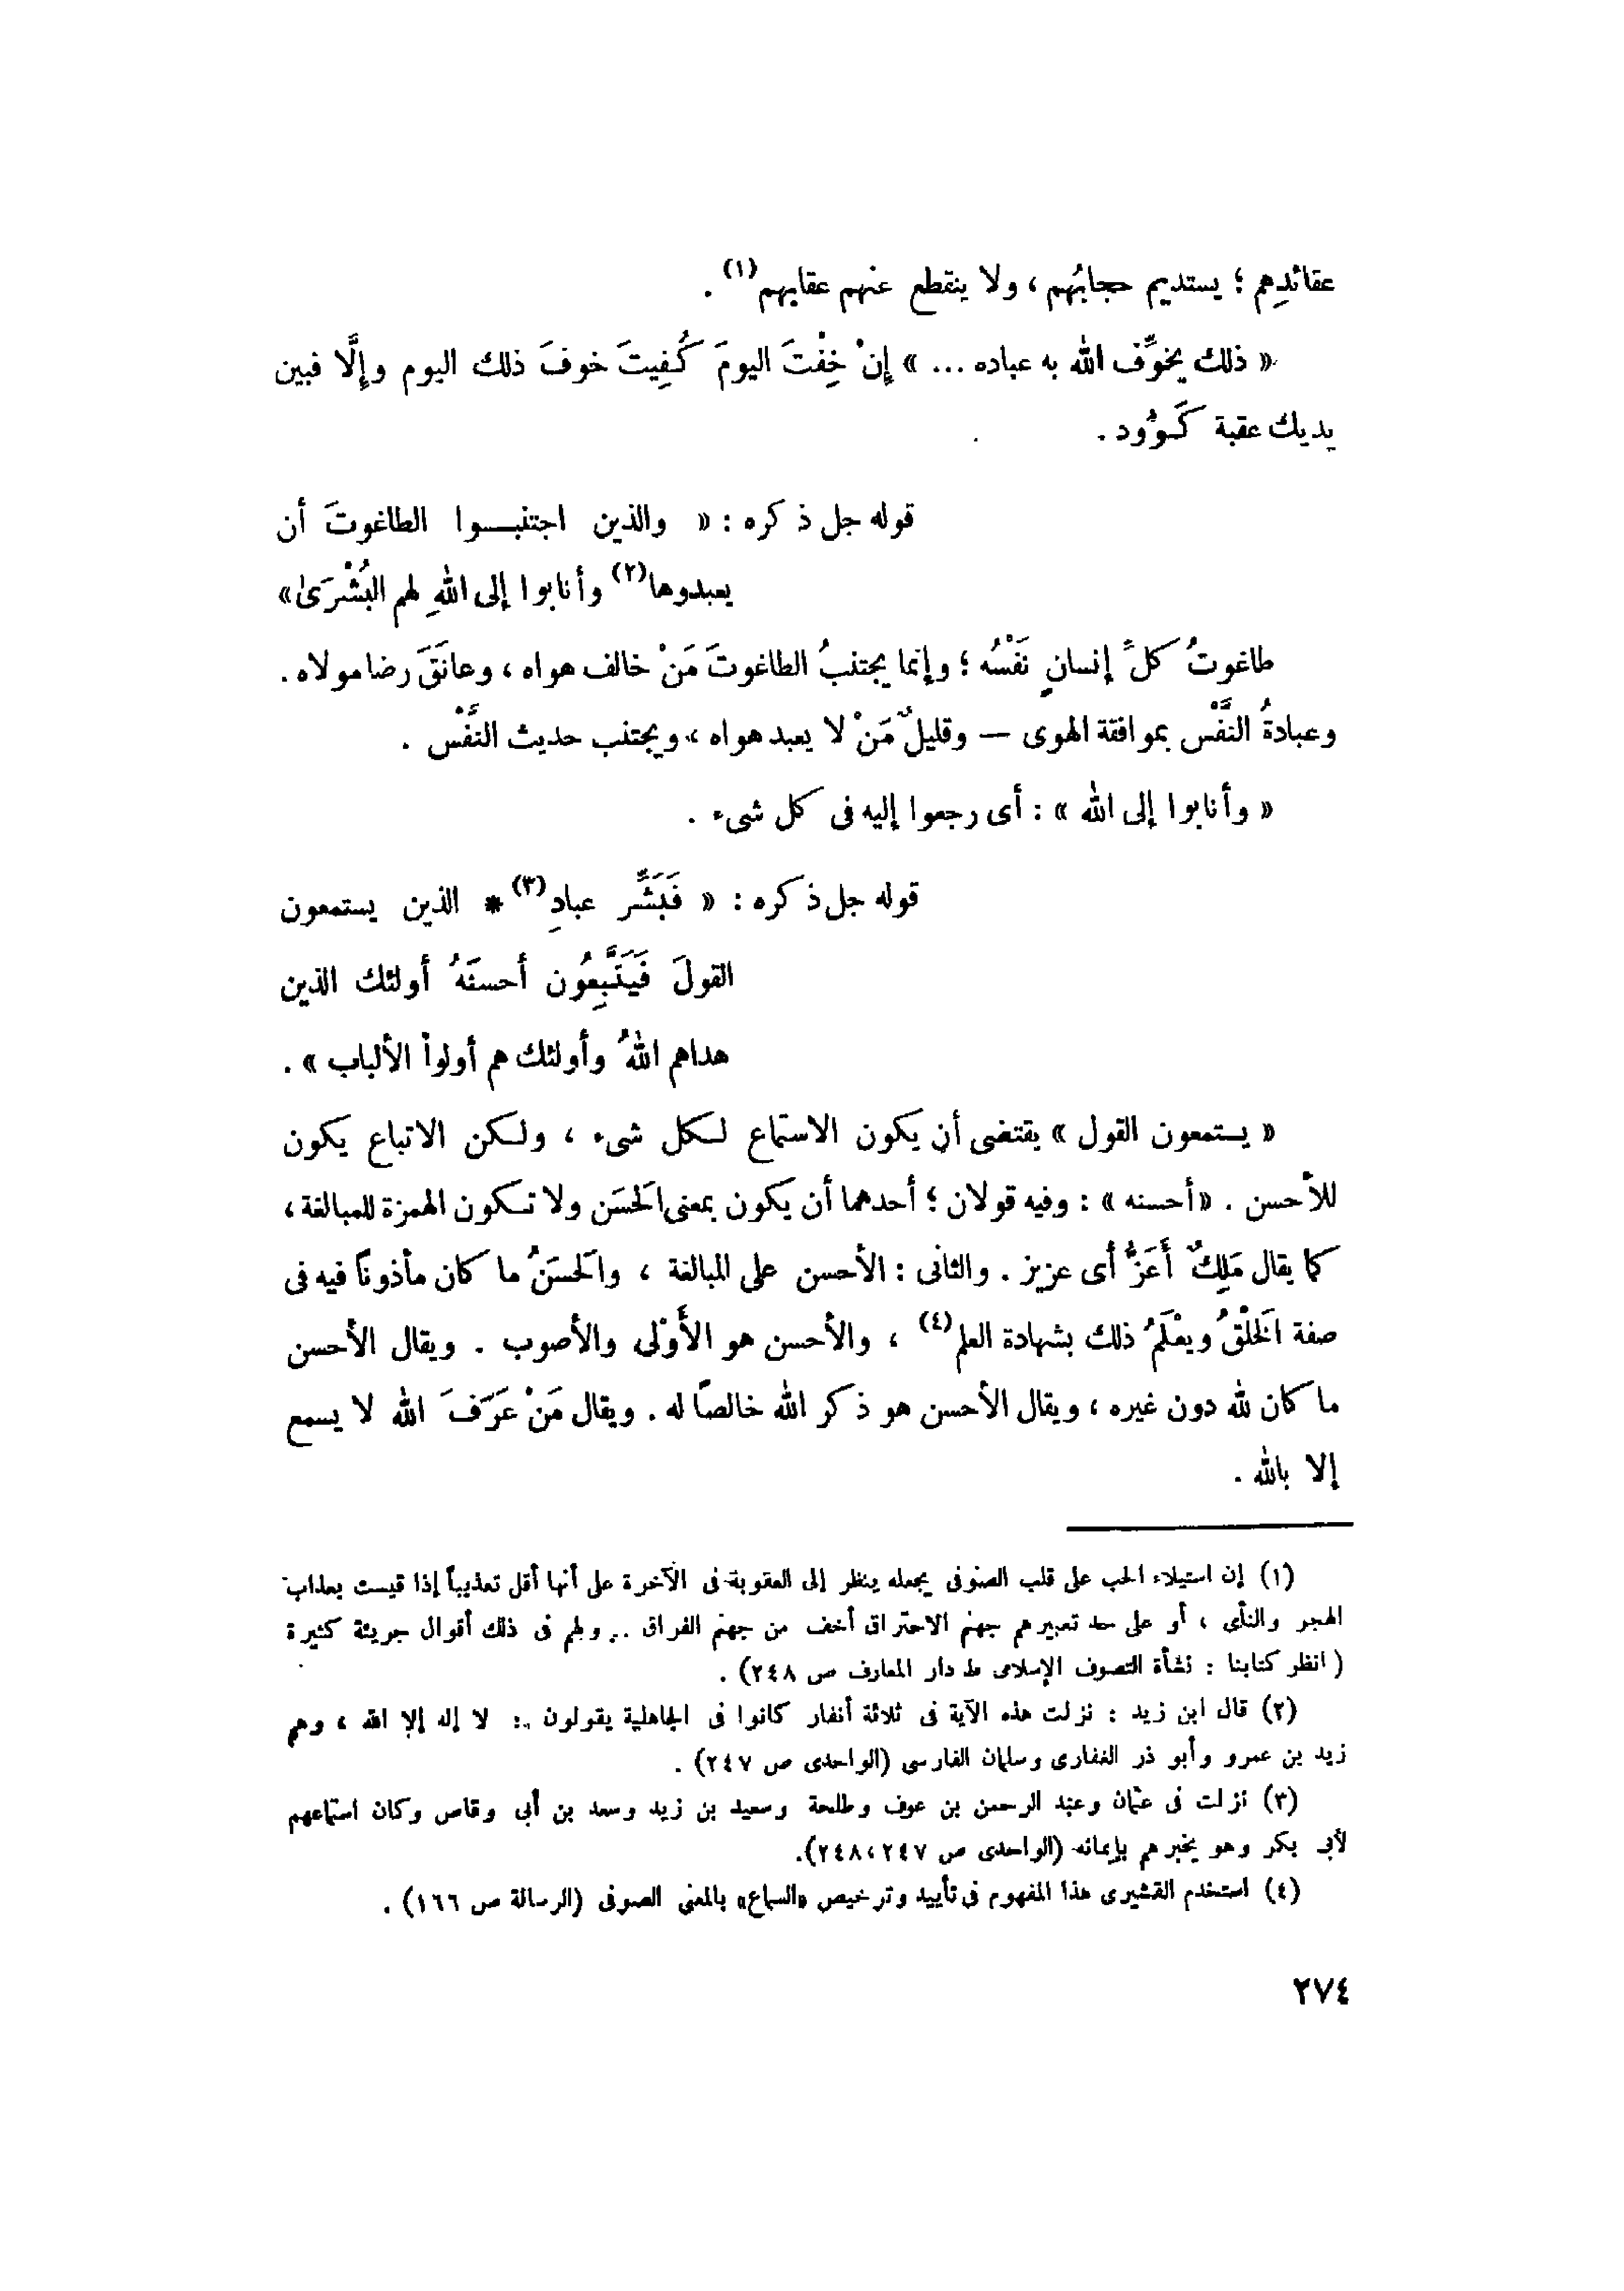 عقائدِهم ؛ يستديم حجابُهم ، ولا ينقطع عنهم عقابهم(١) .
« ذلك يخوِّف الله به عباده ... » إِنْ خِفْتَ اليومَ كُفِيتَ خوفَ ذلك اليوم وإِلَّا فبين
يديك عقبة كَؤُود .
قوله جل ذكره : « والذين اجتنبوا الطاغوتَ أن
يعبدوها(٢) وأنابوا إلى اللهِ لهم البُشْرَىٰ»
طاغوتُ كلِّ إنسانٍ نَفْسُه ؛ وإنما يجتنبُ الطاغوتَ مَنْ خالف هواه ، وعانَقَ رضا مولاه .
وعبادةُ النَّفْس بموافقة الهوى — وقليلٌ مَنْ لا يعبد هواه ، ويجتنب حديث النَّفْس .
« وأنابوا إلى الله » : أى رجعوا إليه فى كل شىء .
قوله جل ذكره : « فَبَشِّر عبادِ(٣) * الذين يستمعون
القولَ فَيَتَّبِعُون أحسنَهُ أولئك الذين
هداهم اللهُ وأولئك هم أولوا الألباب » .
« يستمعون القول » يقتضى أن يكون الاستماع لكل شىء ، ولكن الاتباع يكون
للأحسن . «أحسنه » : وفيه قولان ؛ أحدهما أن يكون بمعنى الحَسَن ولا تكون الهمزة للمبالغة ،
كما يقال مَلِكٌ أَعَزُّ أى عزيز . والثانى : الأحسن على المبالغة ، والحَسَنُ ما كان مأذونًا فيه فى
صفة الخَلْقُ ويعْلَمُ ذلك بشهادة العلم(٤) ، والأحسن هو الأَوْلى والأصوب . ويقال الأحسن
ما كان لله دون غيره ، ويقال الأحسن هو ذكر الله خالصًا له . ويقال مَنْ عَرَفَ الله لا يسمع
إلا بالله .
(١) إن استيلاء الحب على قلب الصوفى يجعله ينظر إلى العقوبة فى الآخرة على أنها أقل تعذيباً إذا قيست بعذاب
الهجر والنأى ، أو على حد تعبيرهم جهنم الاحتراق أخف من جهنم الفراق .. ولهم فى ذلك أقوال جريئة كثيرة
( انظر كتابنا : نشأة التصوف الإسلامى ط دار المعارف ص ٢٤٨) .
(٢) قال ابن زيد : نزلت هذه الآية فى ثلاثة أنفار كانوا فى الجاهلية يقولون : لا إله إلا الله ، وهم
زيد بن عمرو وأبو ذر الغفارى وسلمان الفارسى (الواحدى ص ٢٤٧) .
(٣) نزلت فى عثمان وعبد الرحمن بن عوف وطلحة وسعيد بن زيد وسعد بن أبى وقاص وكان استماعهم
لأبى بكر وهو يخبرهم بإيمانه (الواحدى ص ٢٤٧، ٢٤٨).
(٤) استخدم القشيرى هذا المفهوم فى تأييد وترخيص «السماع» بالمعنى الصوفى (الرسالة ص ١٦٦) .
٢٧٤